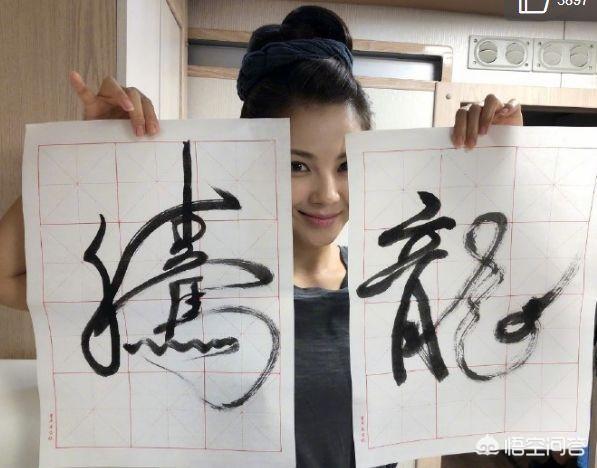 3897
騰 龍
悟空问答